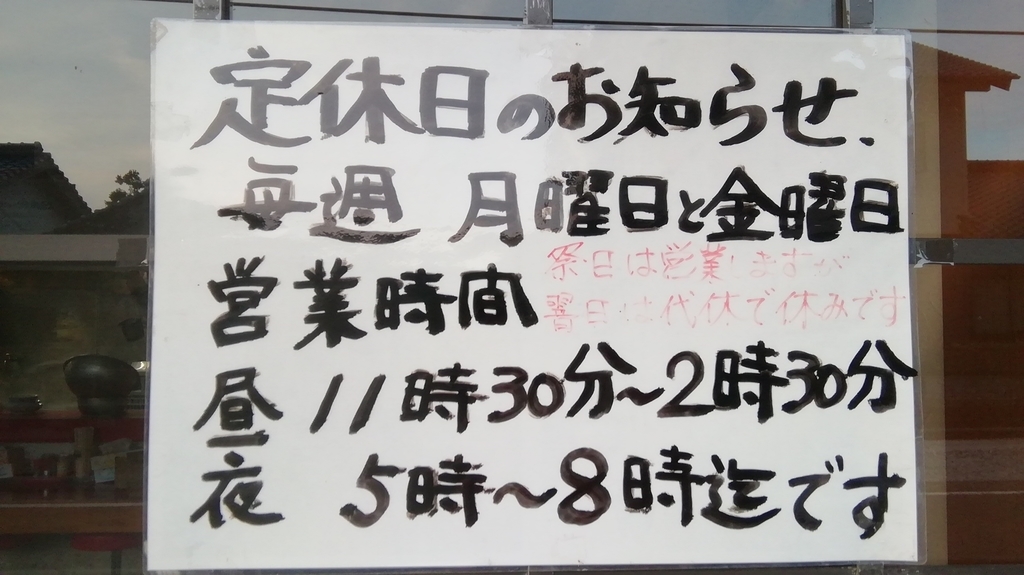 定休日のお知らせ、
毎週 月曜日と金曜日
祭日は営業しますが
翌日は代休で休みです
営業時間
昼 11時30分~2時30分
夜 5時~8時迄です